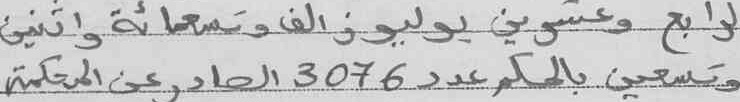 لرابع وعشرين يوليوز الف وتسعمائة واثنين
وتسعين بالحكم عدد 3076 الصادر عن المحكمة